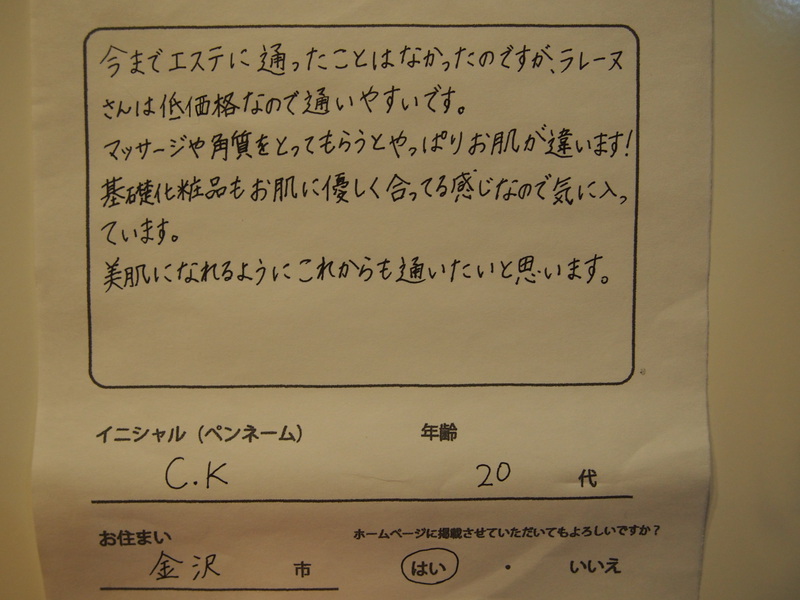 今までエステに通ったことはなかったのですが、ラレーヌ
さんは低価格なので通いやすいです。
マッサージや角質をとってもらうとやっぱりお肌が違います!
基礎化粧品もお肌に優しく合ってる感じなので気に入っ
ています。
美肌になれるようにこれからも通いたいと思います。
イニシャル（ペンネーム） 年齢
C.K 20 代
お住まい ホームページに掲載させていただいてもよろしいですか？
金沢 市 はい ・ いいえ